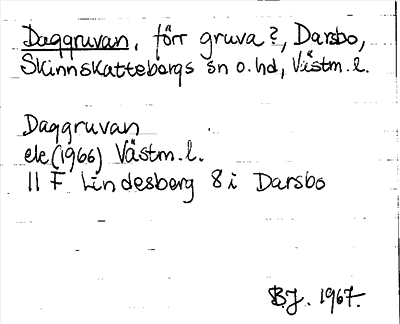 Daggruvan, förr gruva?, Darsbo,
Skinnskattebergs sn o. hd, Västm. l.
Daggruvan
ek (1966) Västm. l.
11 F Lindesberg 8 i Darsbo
B.J. 1967.